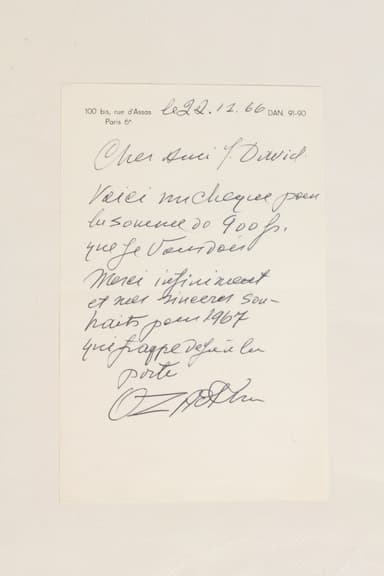 100 bis, rue d'Assas le 22.12.66 DAN. 91-90
Paris 6e
Cher Ami J David
Voici un cheque pour
la somme de 900 frs.
que je vous dois
Merci infiniment
et mes sinceres sou-
haits pour 1967
qui frappe deja à la
porte
OZadkine